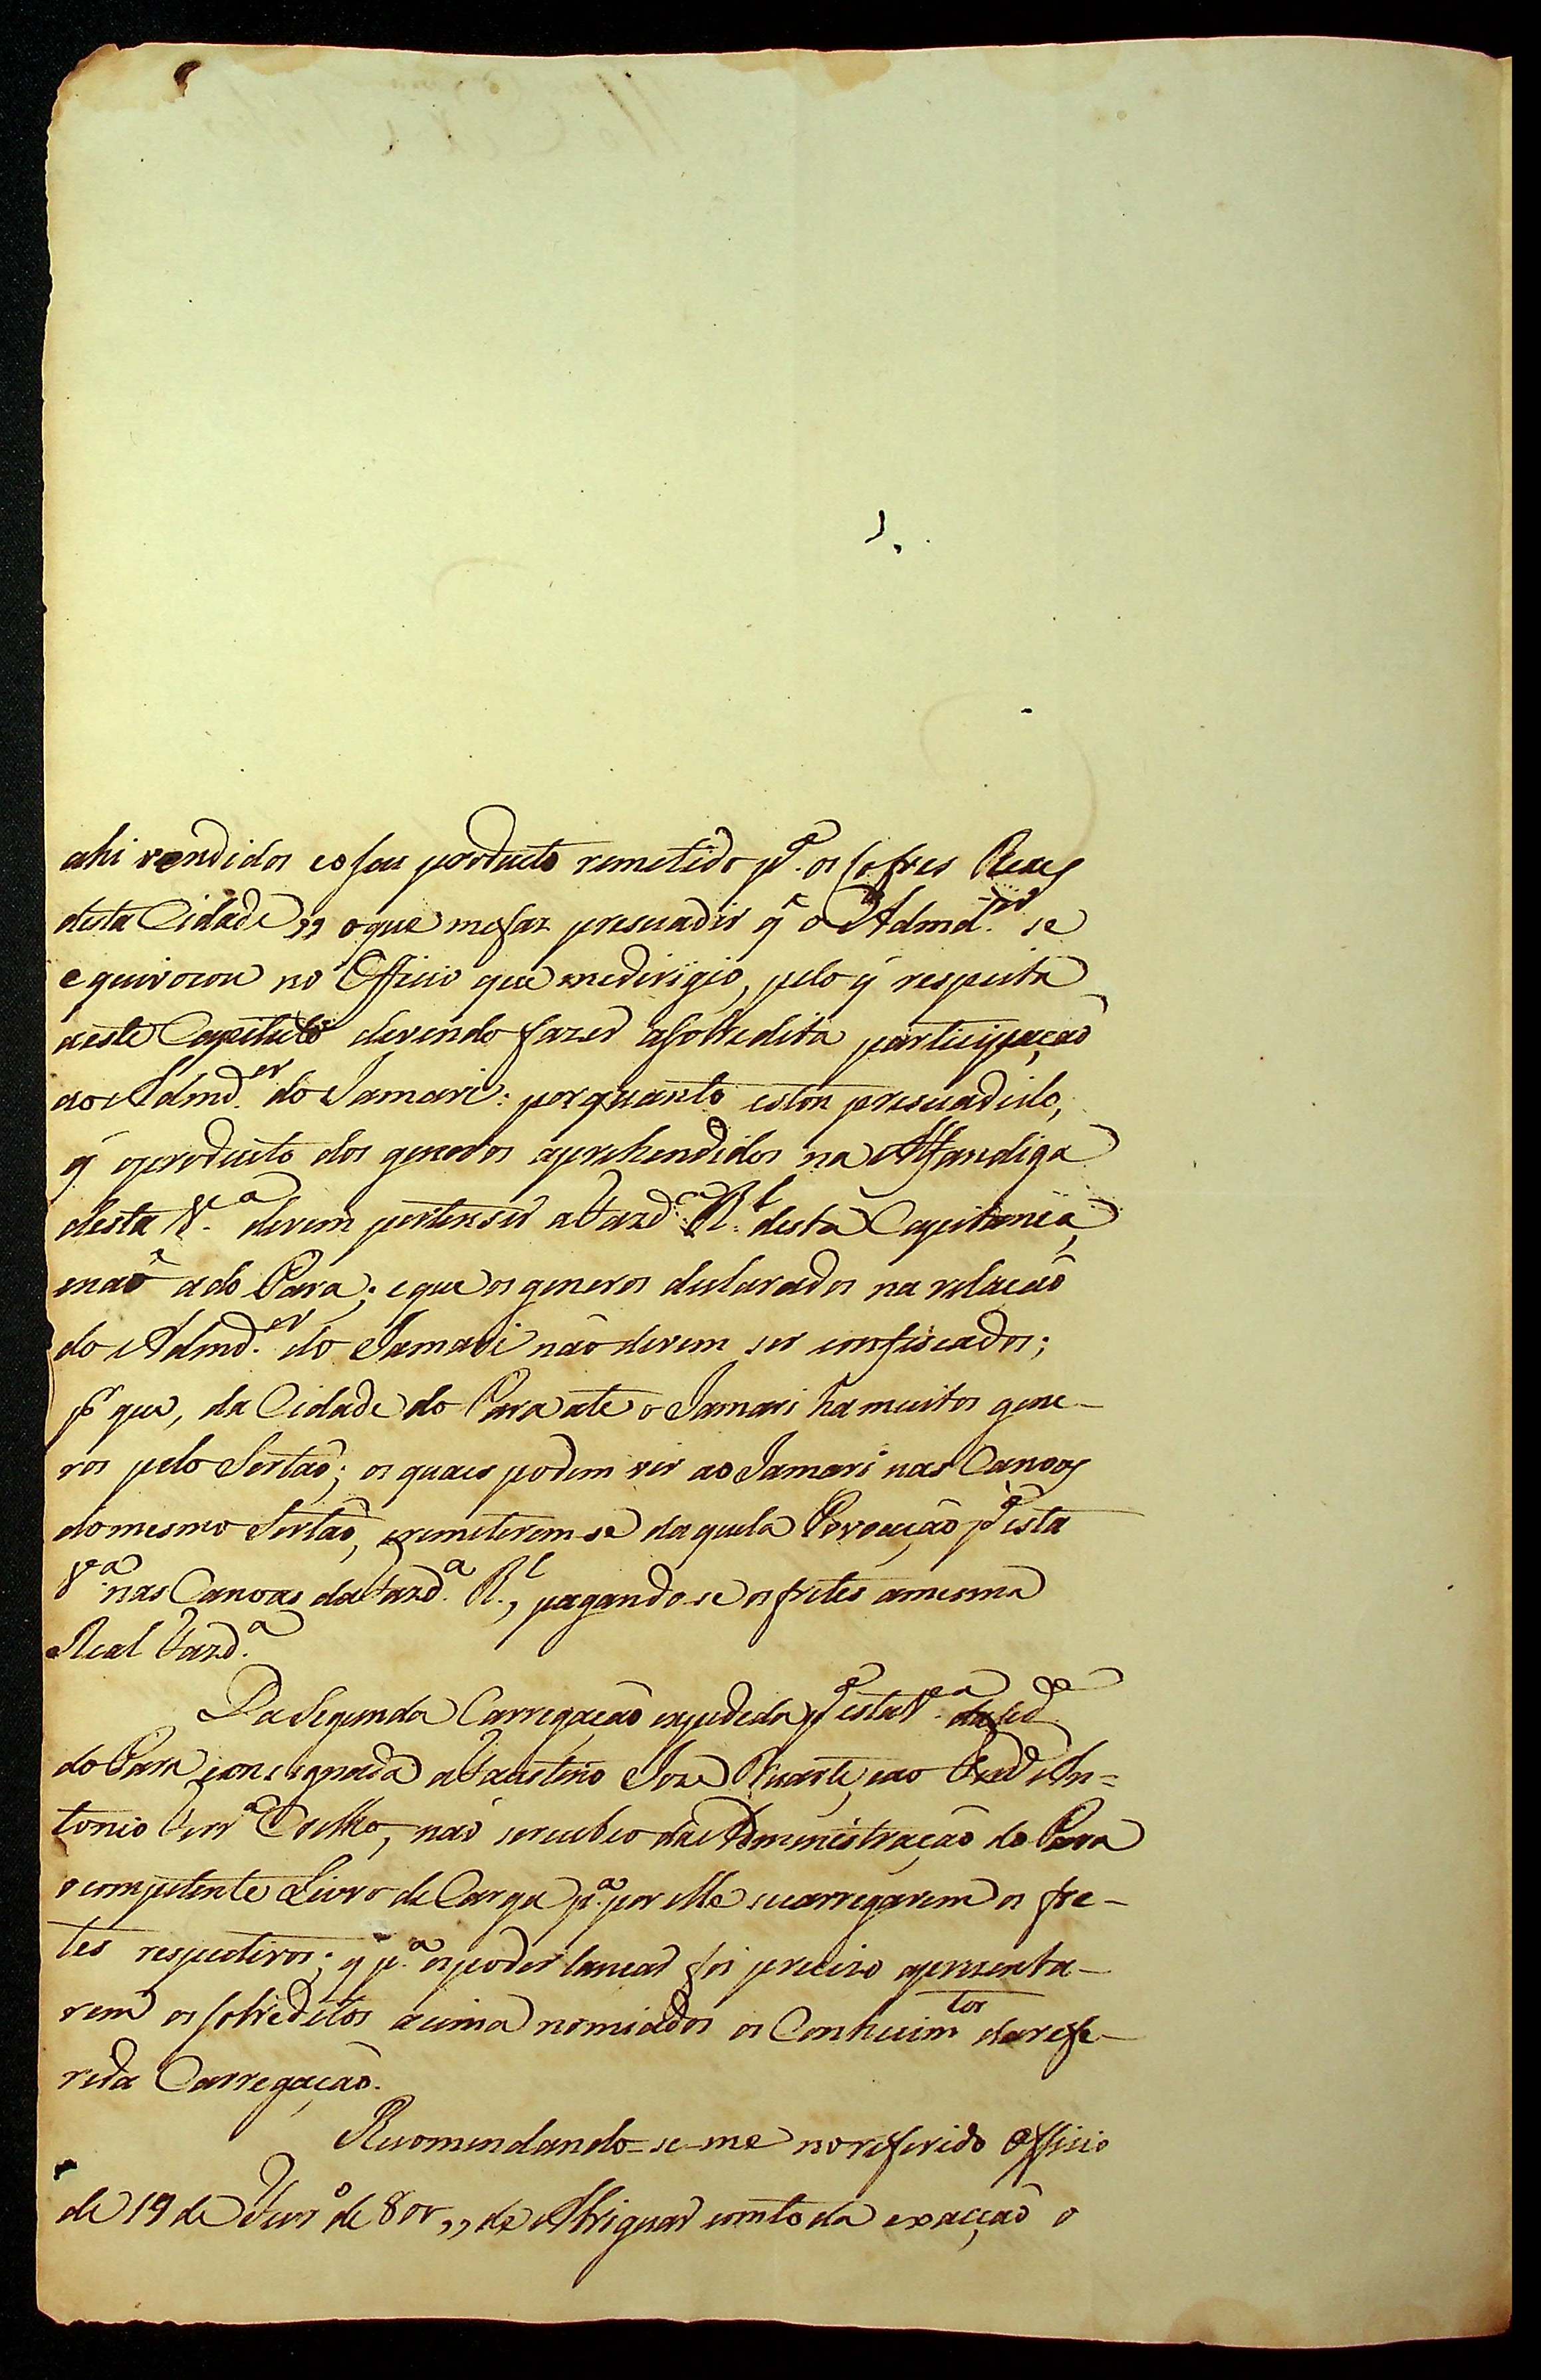 ahi vendidos eo seu producto remetido pª. os Cofres Reaes
desta Cidade,, oque mefaz presuadir q̃ o Admd.ºʳ se
equivocou no Officio que medirigio, pelo q̃ respeita
aeste Capitulo devendo fazer asobredita participação
ao Admd.ºʳ do Jamari: porquanto estou presuadido,
q̃ oproducto dos generos aprehendidos na Alfandiga
desta Vª. devem pertenser a Fazdª. Rˡ. desta Capitania,
enaõ ado Para; eque os generos declarados na relacaõ
do Admd.ºʳ do Jamari não devem ser confiscados;
pʳ que, da Cidade do Para ate o Jamari ha muitos gene-
ros pelo Sertaõ; os quaes podem vir ao Jamari nas Canoas
domesmo Sertaõ, eremeterem-se daquela Povoação pª esta
Vª. nas Canoas da Fazdª. Rˡ., pagando-se os fretes amesma
Real Fazdª.
Da Segunda Carregacaõ expedida pª esta Vª. da Cidᵉ.
do Para consignada a Faustino Joze Duarte, eao An=
tonio Ferrª Coelho, naõ serecebeo da Administração do Para
o competente Livro de Carga pª. por elle secarregarem os fre-
tes respectivos; q̃ pª. ospoder lancar foi precizo aprezenta-
rem os sobreditos acima nomiados os Conhecimᵗᵒˢ darefe-
rida Carregaçaõ.
Recomendando-se-me noreferido Officio
de 19 de Fevrº de 801,, de Abriguar comtoda exacçaõ o